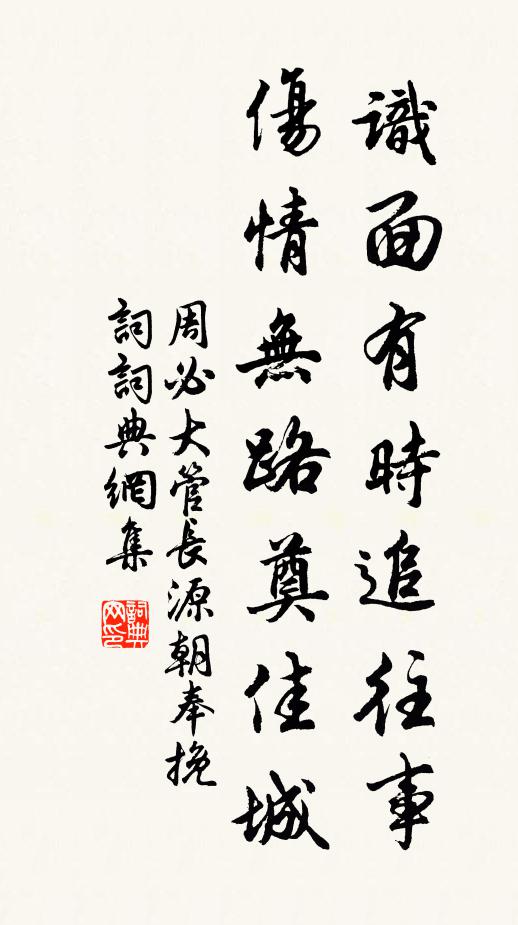 識面有時追往事
傷情無路奠佳城
周必大管長源朝奉挽
詞詞典網集
詞典网印